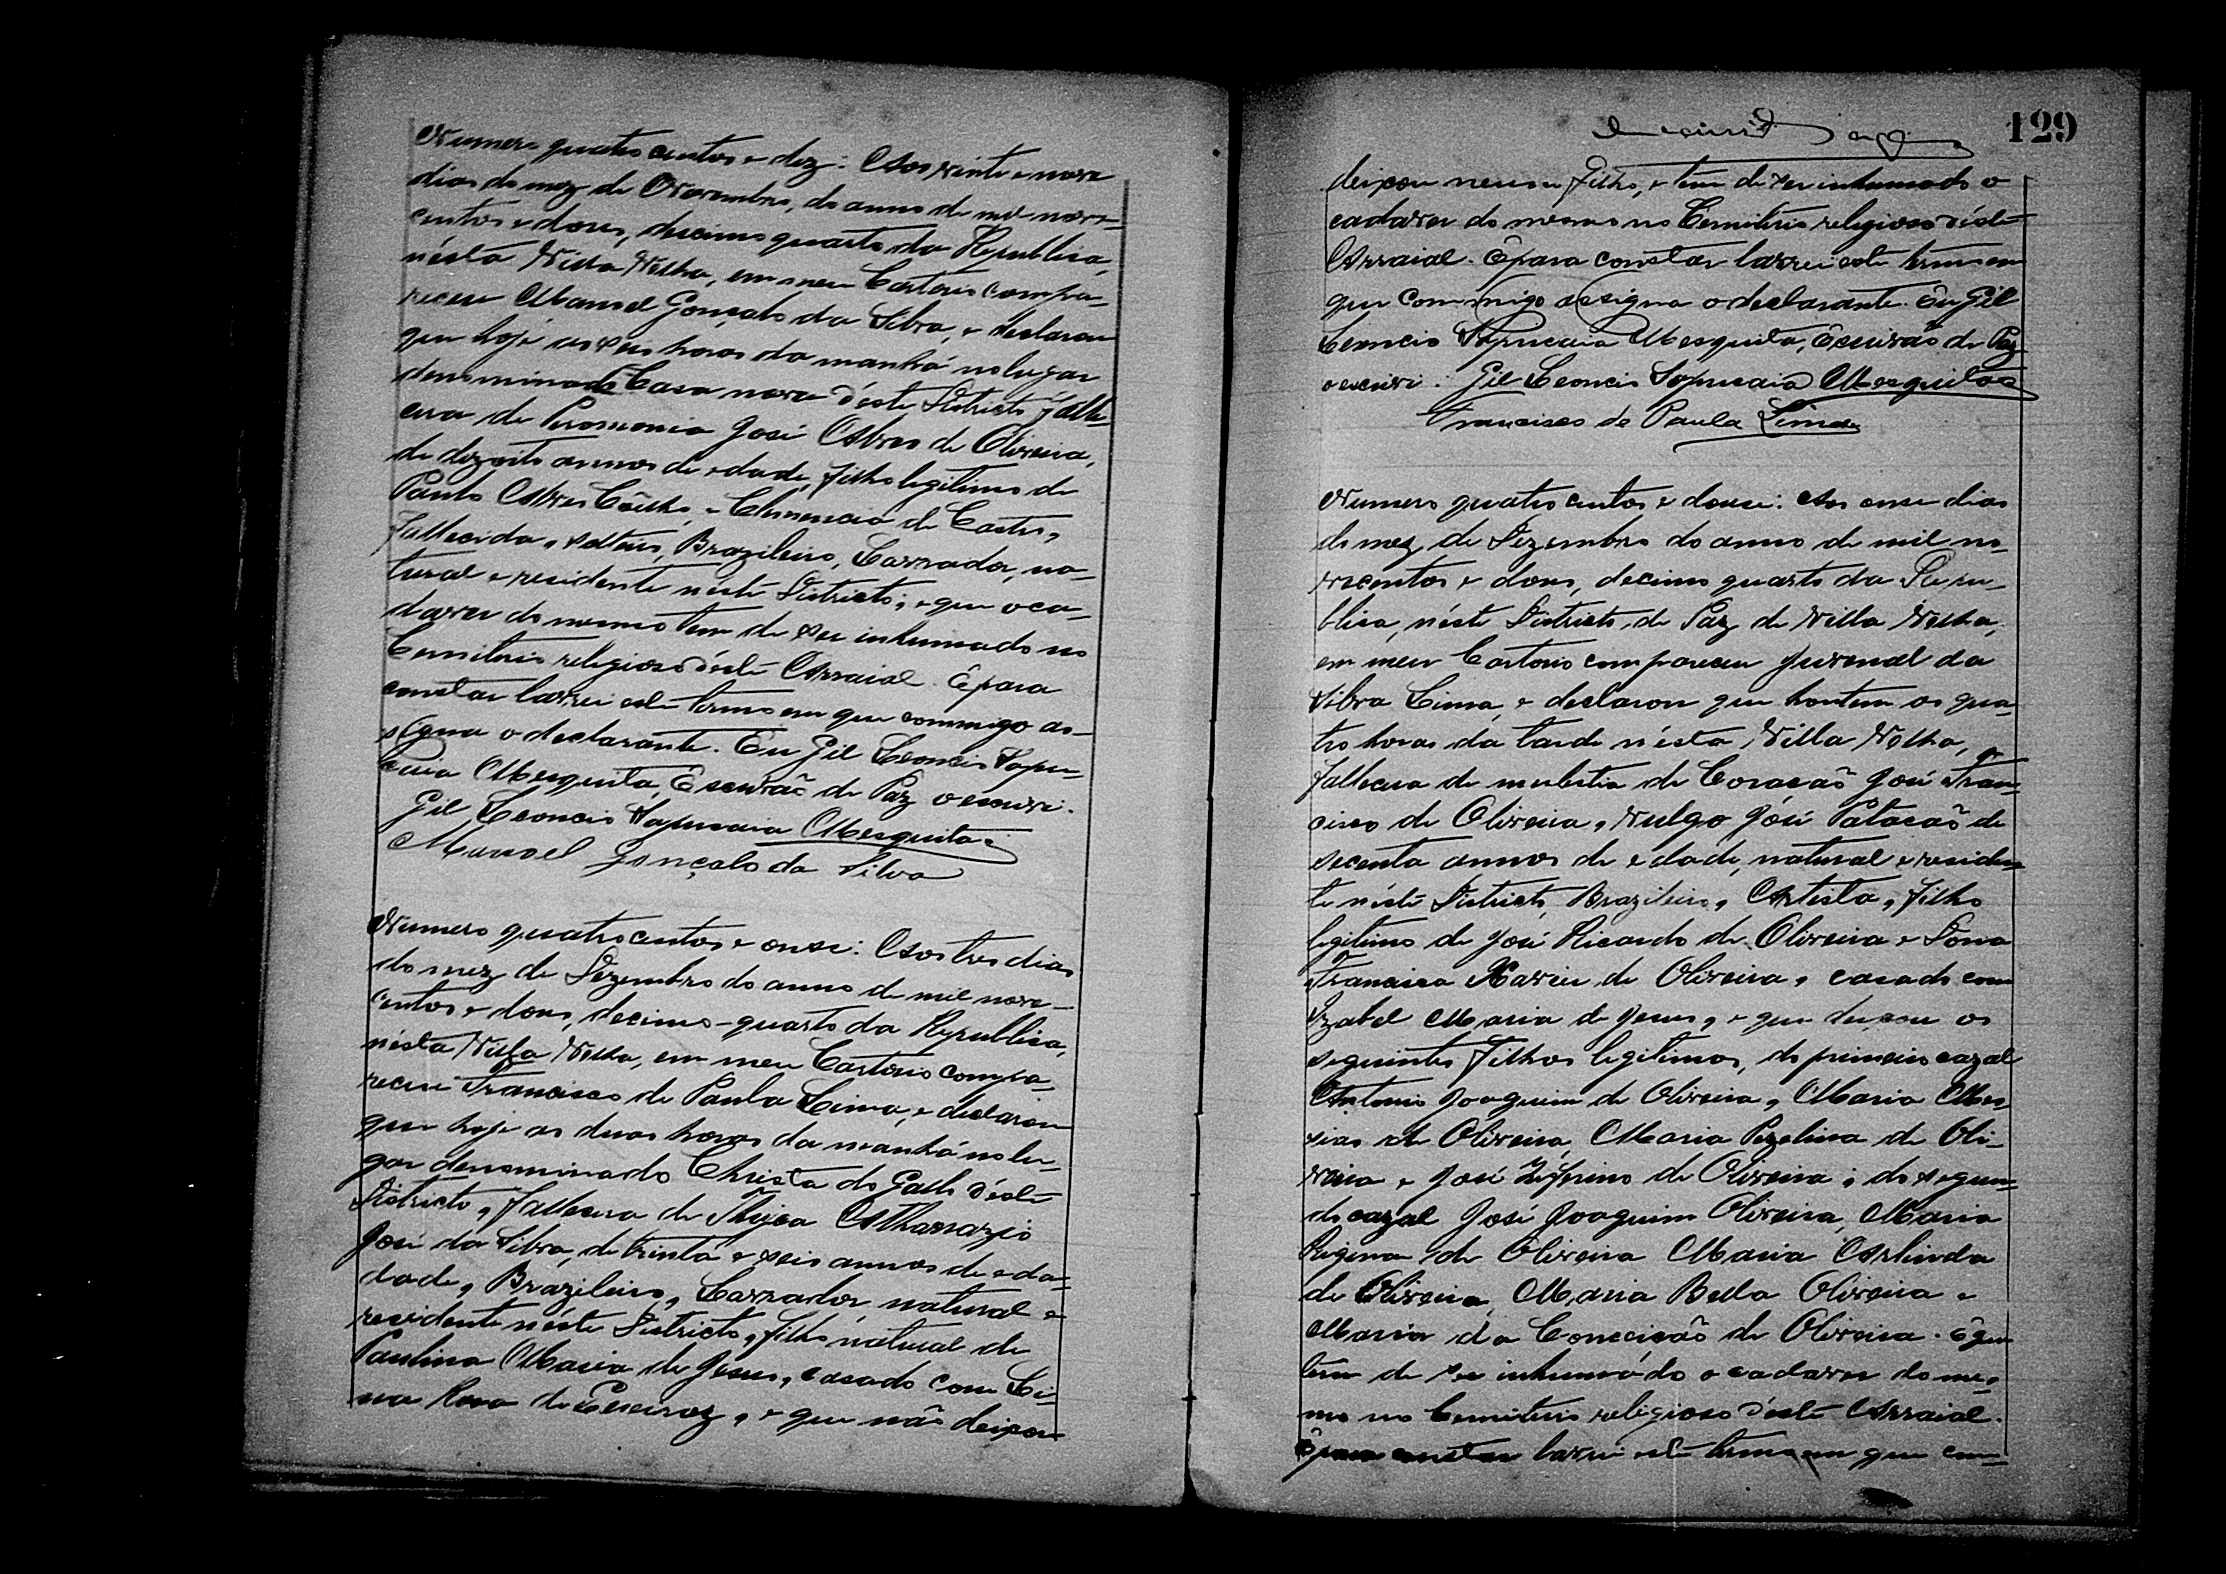 Numero quatro centos e dez: Aos vinte e nove
dias do mez de Novembro, do anno de mil nove-
centos e dous, decimo quarto da Republica,
nésta Villa Velha, em meu Cartorio compa-
receu Manoel Gonçalo da Silva, e declarou
que hoje as seis horas da manhá no lugar
denominado Casa nova déste Districto falle-
cera de José Alves de Oliveira,
de dezoito annos de edade, filho legitimo de
Paulo Alves Coêlho, e Clemencia de Castro,
fallecida, solteiro, Brazileiro, Lavrador, na-
tural e residente néste Districto; e que o ca-
daver do mesmo tem de ser inhumado no
Cemiterio religioso déste Arraial. E para
constar lavrei este termo em que commigo as-
signa o declarante. Eu Gil Leoncio Sapu-
caia Mesquita, Escrivão de Paz o escrevi.
Gil Leoncio Sapucaia Mesquita.
Manoel Gonçalo da Silva
Numero quatro centos e onse: Aos tres dias
do mez de Dezembro do anno de mil nove-
centos e dous, decimo-quarto da Republica,
nésta Villa Velha, em meu Cartorio compa-
receu Francisco de Paula Lima, e declarou
que hoje as duas horas da manhá no lu-
gar denominado Christa do Gallo déste
Districto, fallecera de Athanazio
José da Silva, de trinta e seis annos de eda-
dade, Brazileiro, Lavrador, natural e
residente néste Districto, filho natural de
Paulina Maria de Jesus, casado com Li-
na Rosa de, e que não deixou
129
deixou nenhum filho, e tem de ser inhumado o
cadaver do mesmo no Cemiterio religioso déste
Arraial. E para constar lavrei este termo em
que commigo assigna o declarante. Eu Gil
Leoncio Sapucaia Mesquita, Escrivão de Paz
o escrevi. Gil Leoncio Sapucaia Mesquita
Francisco de Paula Lima
Numero quatro centos e douse: Aos onse dias
do mez de Dezembro do anno de mil no-
vecentos e dous, decimo quarto da Repu-
blica, néste Districto de Paz de Villa Velha,
em meu Cartorio compareceu Juvenal da
Silva Lima, e declarou que hontem as qua-
tro horas da tarde nésta Villa Velha,
fallecera de molestia de Coracão José Fran-
cisco de Oliveira, vulgo José Patacão de
secenta annos de edade, natural e residen-
te néste Districto, Brazileiro, Artista, filho
legitimo de José Ricardo de Oliveira e Dona
Francisca Xavier de Oliveira, casado com
Izabel Maria de Jesus, e que deixou os
seguintes filhos legitimos, do primeiro cazal
Antonio Joaquim de Oliveira, Maria Mes-
sias de Oliveira, Maria de Oli-
veira e José Zeferino de Oliveira; do segun-
do cazal José Joaquim Oliveira, Maria
Regina de Oliveira Maria Arlinda
de Oliveira, Maria Bella Oliveira e
Maria da Conceicão de Oliveira. E que
tem de ser inhumádo o cadaver do mes-
mo no Cemiterio religioso déste Arraial.
E para constar lavrei este termo em que com-